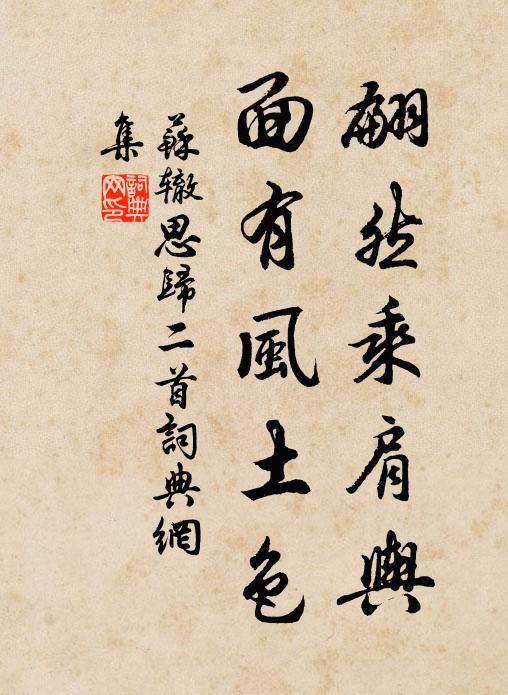 翩然乘肩輿
面有風土色
蘇轍思歸二首詞典網
集
詞典
网印